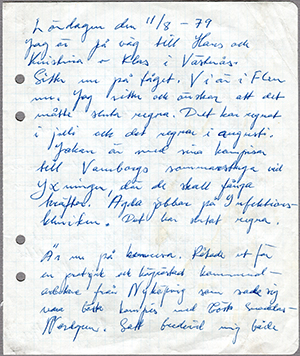 Lördagen den 11/8 - 79
Jag är på väg till Hans och
Kristina o Klas i Västerås.
Sitter nu på tåget. Vi är i Flen
nu. Jag sitter och önskar att det
måste sluta regna. Det har regnat
i juli och det regnar i augusti.
Johan är med sina kompisar
till Vamborgs sommarstuga vid
Yxningen, där de skall fånga
kräftor. jobbar på Infektions-
kliniken. Det har slutat regna.
Är nu på . Råkade ut för
en pratsjuk och hjärtnära kommunal-
arbetare från Nyköping som sade sig
vara kompis med
. Satt bredvid mig både